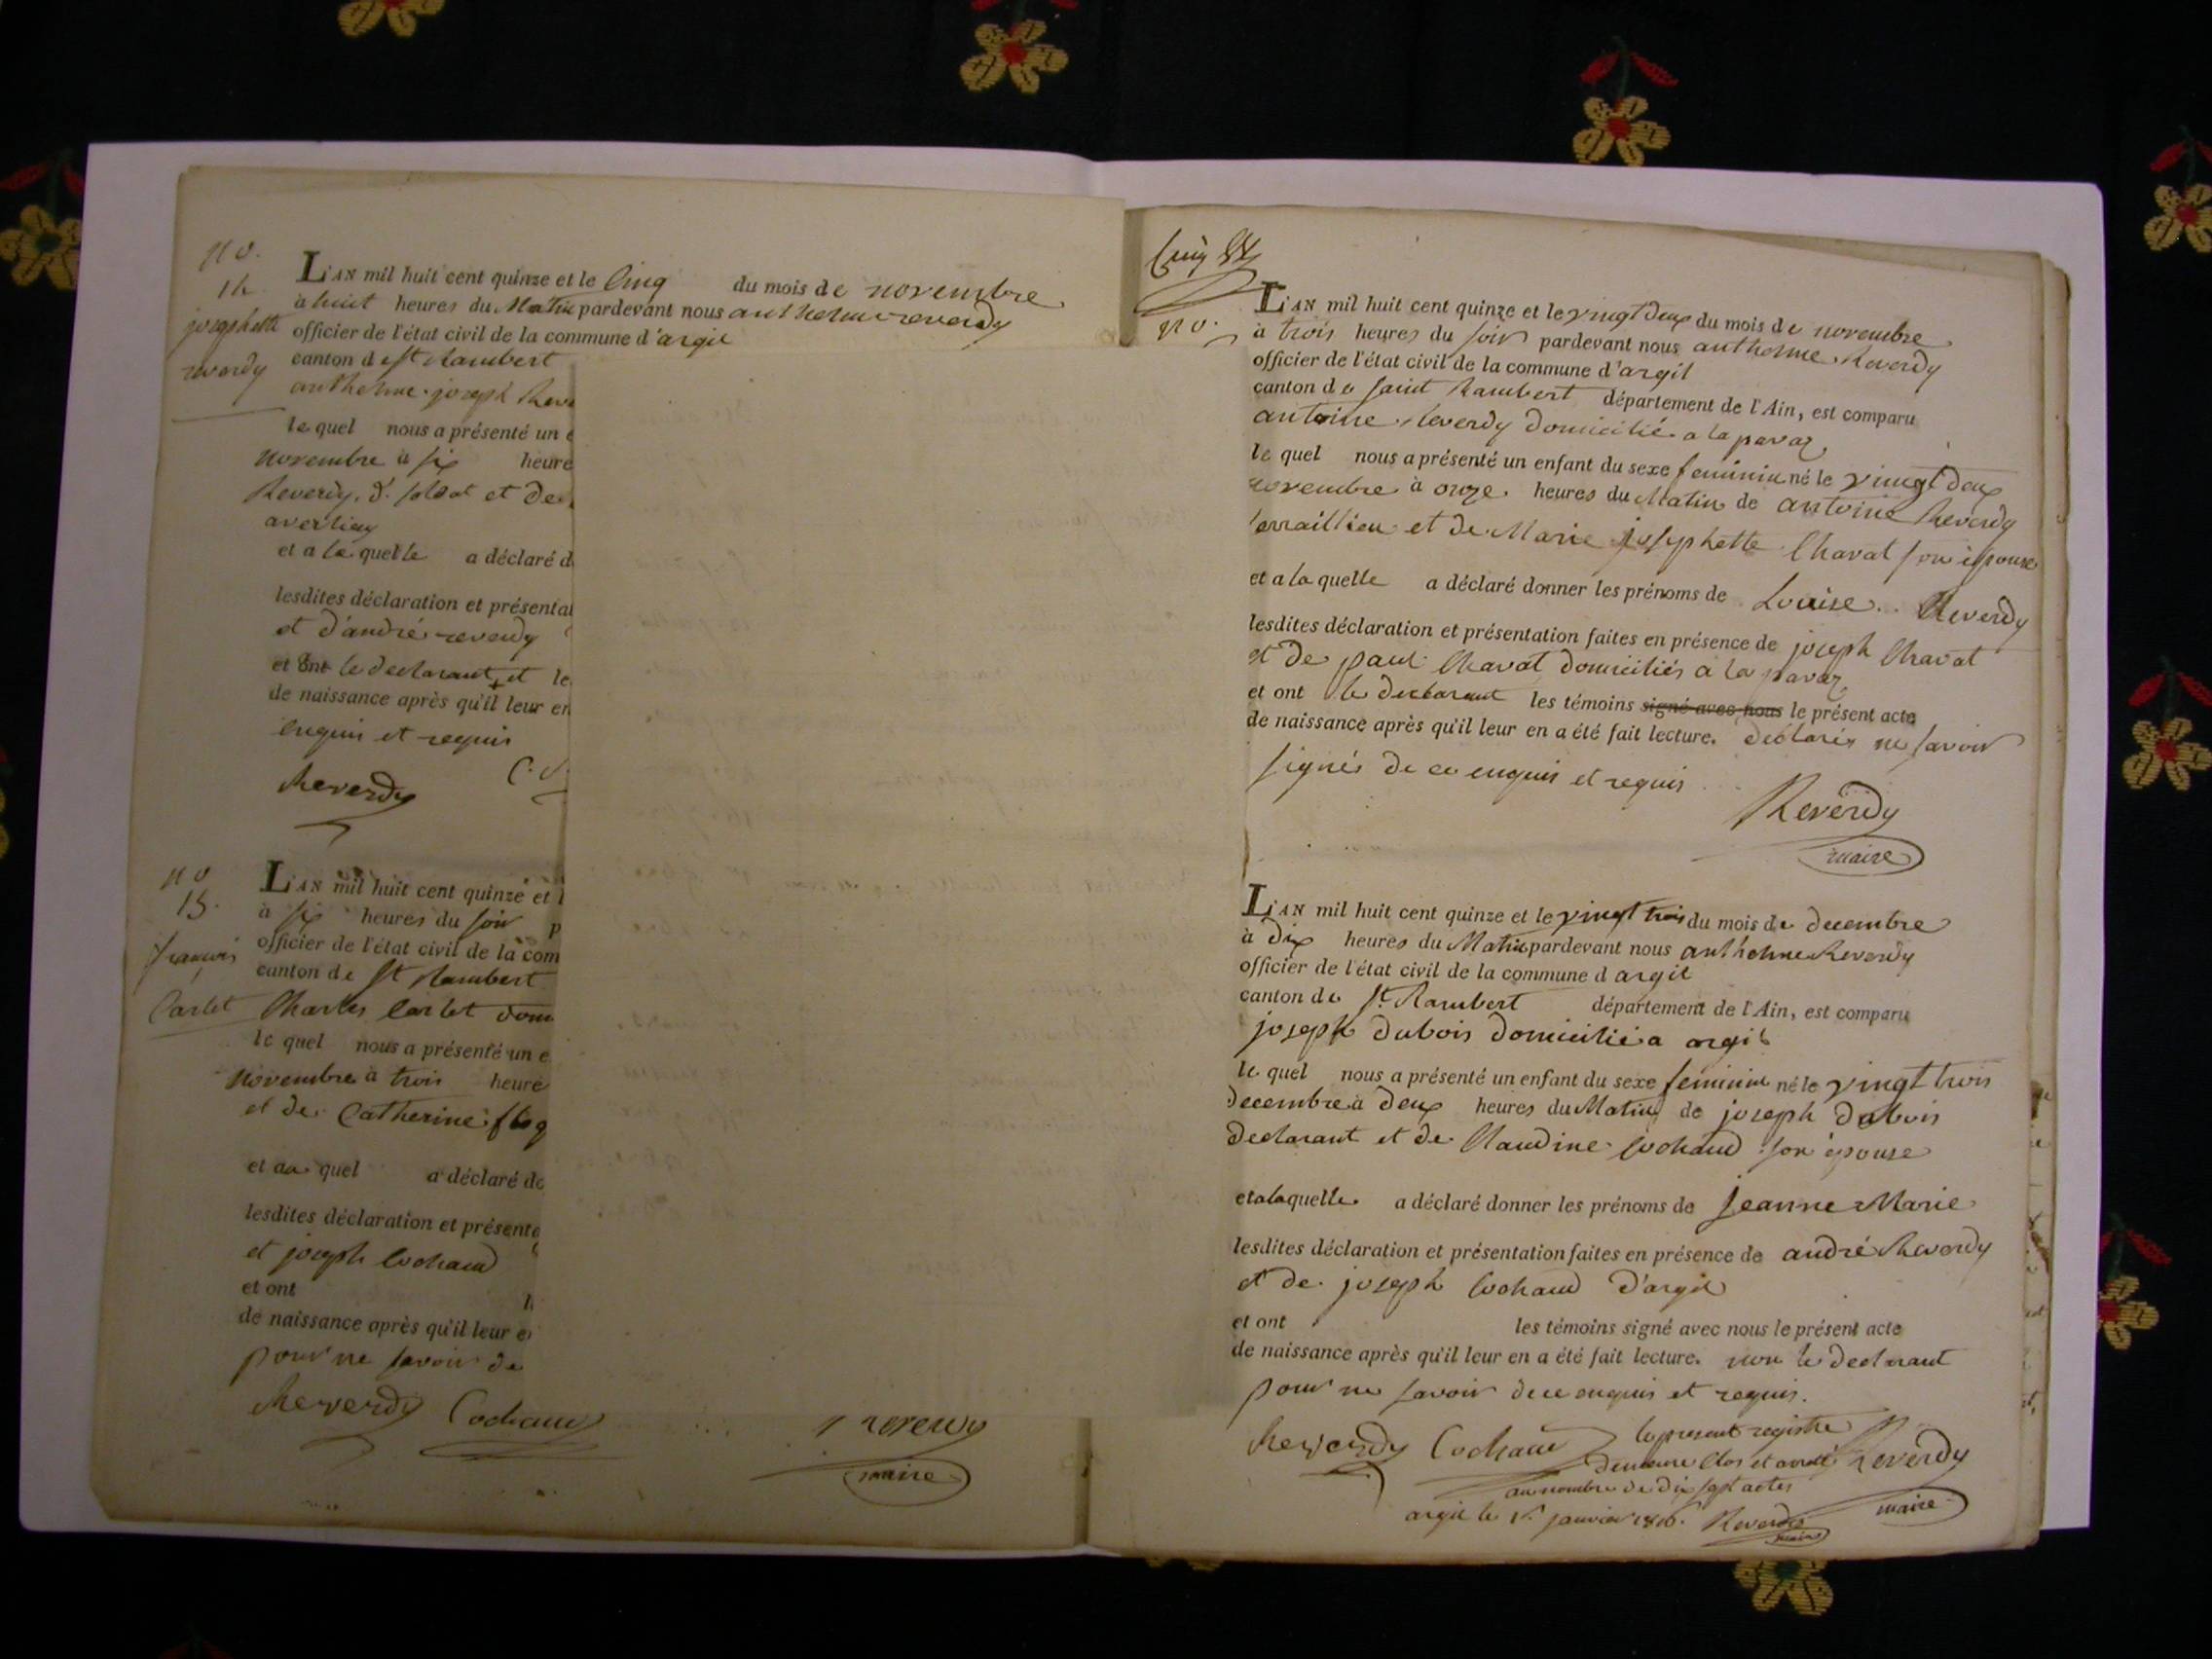 no.
14
josephette
reverdy
L'AN mil huit cent quinze et le Cinq du mois de novembre
à huit heures du Matin pardevant nous anthelme reverdy
officier de l'état civil de la commune d'argil
canton de St Rambert
anthelme joseph Reve
le quel nous a présenté un e
novembre à six heure
Reverdy, d. soldat et de
averlieu
et a la quelle a déclaré d
lesdites déclaration et présentat
et d'andré reverdy
et ont le declarant et le
de naissance après qu'il leur en
enquis et requis
Reverdy
no
15.
françois
Carlet
L'AN mil huit cent quinze et l
à six heures du soir p
officier de l'état civil de la com
canton de St Rambert
Charles Carlet dom
le quel nous a présenté un e
novembre à trois heure
et de Catherine
et au quel a déclaré do
lesdites déclaration et présente
et joseph Cochaud
et ont
de naissance après qu'il leur e
pour ne savoir de
Reverdy Cochaud reverdy
maire
no.
L'AN mil huit cent quinze et le vingt deux du mois de novembre
à trois heures du soir pardevant nous anthelme Reverdy
officier de l'état civil de la commune d'argil
canton de saint Rambert département de l'Ain, est comparu
antoine Reverdy domicilié a la pavaz
le quel nous a présenté un enfant du sexe feminin né le vingt deux
novembre à onze heures du Matin de antoine Reverdy
et de Marie josephette Chavat son épouse
et a la quelle a déclaré donner les prénoms de Louise Reverdy
lesdites déclaration et présentation faites en présence de joseph Chavat
et de paul Chavat domiciliés a la pavaz
et ont le declarant les témoins signé avec nous le présent acte
de naissance après qu'il leur en a été fait lecture. declarés ne savoir
signés de ce enquis et requis
Reverdy
maire
L'AN mil huit cent quinze et le vingt trois du mois de decembre
à dix heures du Matin pardevant nous anthelme Reverdy
officier de l'état civil de la commune d argil
canton de St. Rambert département de l'Ain, est comparu
joseph dubois domicilié a argil
le quel nous a présenté un enfant du sexe feminin né le vingt trois
decembre à deux heures du Matin de joseph dubois
declarant et de Claudine Cochaud son épouse
et a la quelle a déclaré donner les prénoms de Jeanne Marie
lesdites déclaration et présentation faites en présence de andré Reverdy
et de joseph Cochaud d'argil
et ont les témoins signé avec nous le présent acte
de naissance après qu'il leur en a été fait lecture. non le declarant
pour ne savoir de ce enquis et requis.
Reverdy Cochaud Reverdy
maire
le present registre
demeure Clos et arreté
au nombre de dix sept actes
argil le 1er janvier 1816. Reverdy
maire